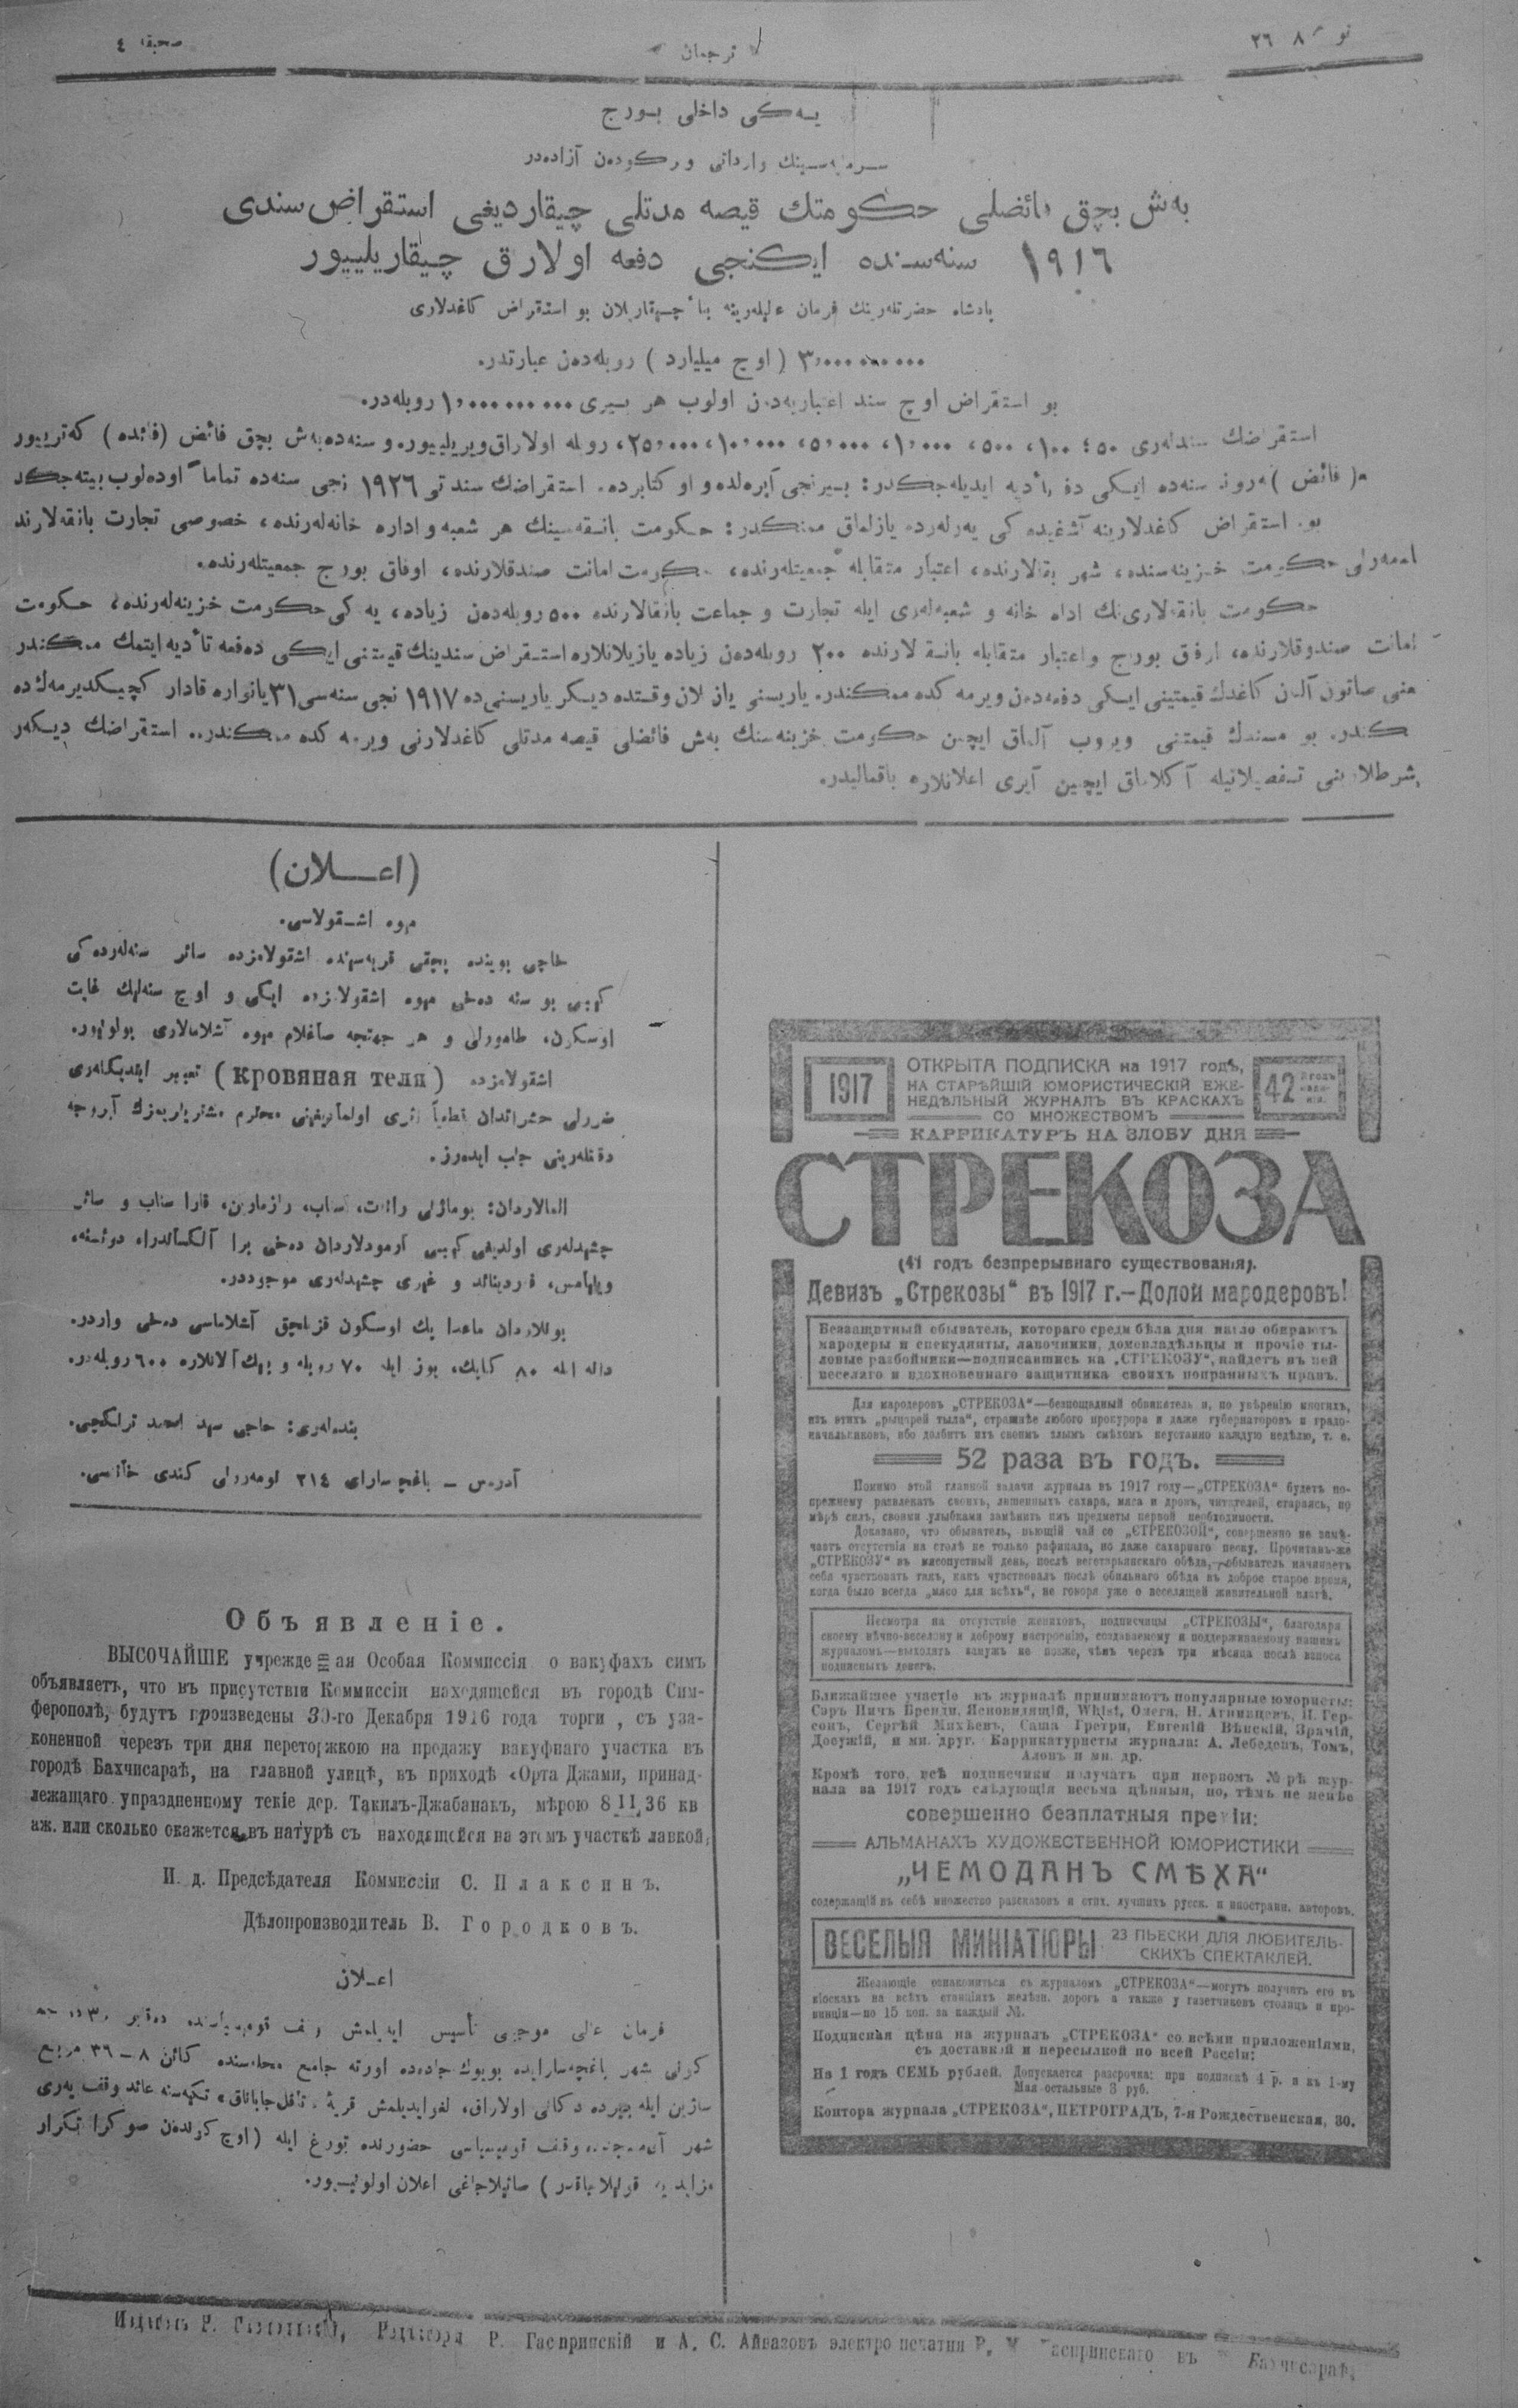 صحیفه ٤
ترجمان
نو ٨ ٢٦
یەکی داخلی بورج
سرمایەسینك وارداتی ویرکودەن آزادەدر
بەش بچق فائضلی حکومتك قیصه مدتلی چیقاردیغی استقراض سندی
١٩١٦ سنەسندە ایکنجی دفعه اولارق چیقاریلییور
پادشاه حضرتلەرینك فرمان عالیلەرینه بناءً چیقاریلان بو استقراض کاغدلاری
٣,٠٠٠ ٠٠٠ ٠٠٠ (اوچ میلیارد) روبلەدەن عبارتدر.
بو استقراض اوچ سند اعتباریەدەن اولوب هر بیری ١,٠٠٠ ٠٠٠ ٠٠٠ روبلەدر.
استقراضك سندلەری ٥٠، ١٠٠، ٥٠٠، ١,٠٠٠، ٥,٠٠٠، ١٠,٠٠٠، ٢٥,٠٠٠، روبله اولاراق ویریلییور. و سنەدە بەش بچق فائض (فائده) کەتریيور
(فائض) هەر سنەدە ایکی دفعه تأدیه ایدیلەجکدر: بیرنجی آپرەلدە و اوکتابردە. استقراضك سندتی ١٩٢٦ نجی سنەدە تماماً اودەلوب بیتەجکدر
بو استقراض کاغدلارینه آشغیدەکی یەرلەردە یازلماق ممکندر: حکومت بانقەسینك هر شعبه و اداره خانەلەرندە، خصوصی تجارت بانقەلارندە
حکومت خزینەسندە، شهر بانقالارندە، اعتبار متقابله جمعیتلەرندە، حکومت امانت صندقلارندە، اوفاق بورج جمعیتلەرندە.
حکومت بانقەلاری‌نك اداه خانه و شعبەلەری ایله تجارت و جماعت بانقالارندە ٥٠٠ روبلەدەن زیاده، یەکی حکومت خزینەلەرندە، حکومت
امانت صندوقلارندە، اوفق بورج و اعتبار متقابله بانقەلارندە ٢٠٠ روبلەدەن زیاده یازیلانلاره استقراض سندینك قیمتنی ایکی دەفعه تأدیه ایتمك ممکندر
یعنی صاتون آلنان کاغدك قیمتینی ایکی دفعەدەن ویرمه کده ممکندر. یاریسنی یازیلان وقتده دیکر یاریسنی ده ١٩١٧ نجی سنەسی ٣١ یانواره قادار کچیکدیرمەك ده
ممکندر. بو سندك قیمتنی ویروب آلماق ایچین حکومت خزینەسنك بەش فائضلی قیصه مدتلی کاغدلارنی ویرمه کده ممکندر. استقراضك دیکەر
شرطلارینی تفصیلاتیله آکلاماق ایچین آیری اعلانلاره باقمالیدر.
(اعلان)
میوه اشقولاسی.
حاجی بویندە بیچقی قریەسندە اشقولامزدە سائر سنەلەردەکی
کبی بو سنه دەخی میوه اشقولامزدە ایکی و اوچ سنەلیك غایت
اوسکون، طامورلی و هر جهتجه صاغلام میوه آشلامالاری بولونیور.
اشقولامزدە (кровяная теля) تعبیر ایتدیکلەری
ضررلی حشراتدان قطعیاً اثری اولمادیغینی محترم مشتریلریمزك آیروجه
دقتلەرینی جلب ایدەرز.
المالاردان: بوماژنی رانەت، سناب، رازمارین، قارا سناب و سائر
چشیدلەری اولدیغی کبی آرمودلاردان دەخی برا آلکساندرا، دوشسە،
ویلیامس، فردیناند و غیری چشیدلەری موجوددر.
بونلاردان ماعدا پك اوسکون قزلجق آشلاماسی دەخی واردر.
دانه الله ٨٠ کاپك، یوز ایله ٧٠ روبله و بیڭ آلانلاره ٦٠٠ روبلەدر.
بندەلەری: حاجی سید احمد ترلکچی.
آدرەس ـ باغچه‌سارای ٢١٤ نومەرولی کندی خانەسی.
Объявленіе.
ВЫСОЧАЙШЕ учрежденная Особая Коммиссія о вакуфахъ симъ
объявляетъ, что въ присутствіи Коммиссіи находящейся въ городѣ Сим-
ферополѣ, будутъ произведены 30-го Декабря 1916 года торги, съ уза-
коненной черезъ три дня переторжкою на продажу вакуфнаго участка въ
городѣ Бахчисараѣ, на главной улицѣ, въ приходѣ «Орта Джами, принад-
лежащаго упраздненному текіе дер. Такилъ-Джабанакъ, мѣрою 8 11,36 кв
аж. или сколько окажется въ натурѣ съ находящейся на этомъ участкѣ лавкой,
И. д. Предсѣдателя Коммиссіи С. Плаксинъ.
Дѣлопроизводитель В. Городковъ.
اعلان
فرمان عالی موجبی تأسیس ایدیلمش وقف قومیسیاسندە دەقابر ٣٠
کونی شهر باغچەسارایدە بویوك جادەدە اورتە جامع محلەسندە کائن ٨ – ٣٦ مربع
ساژین ایله بیردە دکانی اولاراق، لغو ایدیلمش قریۀ «تاقل جاباناق» تکیەسنه عائد وقف یەری
شهر آقمەسجددە وقف قومیسیاسی حضورندە تورغ ایله (اوچ کوندەن صوکرا تکرار
مزایده قویلاجاقدر) صاتیلاجاغی اعلان اولونییور.
1917
ОТКРЫТА ПОДПИСКА на 1917 годъ,
НА СТАРѢЙШІЙ ЮМОРИСТИЧЕСКІЙ ЕЖЕ-
НЕДѢЛЬНЫЙ ЖУРНАЛЪ ВЪ КРАСКАХЪ
СО МНОЖЕСТВОМЪ
42 й годъ изда-нія.
КАРРИКАТУРЪ НА ЗЛОБУ ДНЯ
СТРЕКОЗА
(41 годъ безпрерывнаго существованія).
Девизъ „Стрекозы“ въ 1917 г.—Долой мародеровъ!
Беззащитный обыватель, котораго среди бѣла дня нагло обираютъ
мародеры и спекулянты, лавочники, домовладѣльцы и прочіе ты-
ловые разбойники—подписавшись на „СТРЕКОЗУ“, найдетъ въ ней
веселаго и вдохновеннаго защитника своихъ попранныхъ правъ.
Для мародеровъ „СТРЕКОЗА“—безпощадный обвинитель и, по увѣренію многихъ,
изъ этихъ „рыцарей тыла“, страшнѣе любого прокурора и даже губернаторовъ и градо-
начальниковъ, ибо долбитъ ихъ своимъ злымъ смѣхомъ неустанно каждую недѣлю, т. е.
52 раза въ годъ.
Помимо этой главной задачи журнала въ 1917 году—„СТРЕКОЗА“ будетъ по-
прежнему развлекать своихъ, лишенныхъ сахара, мяса и дровъ, читателей, стараясь, по
мѣрѣ силъ, своими улыбками замѣнить имъ предметы первой необходимости.
Доказано, что обыватель, пьющій чай со „СТРЕКОЗОЙ“, совершенно не замѣ-
чаетъ отсутствія на столѣ не только рафинада, но даже сахарнаго песку. Прочитавъ-же
„СТРЕКОЗУ“ въ мясопустный день, послѣ вегетарьянскаго обѣда,—обыватель начинаетъ
себя чувствовать такъ, какъ чувствовалъ послѣ обильнаго обѣда въ доброе старое время,
когда было всегда „мясо для всѣхъ“, не говоря уже о веселящей живительной влагѣ.
Несмотря на отсутствіе жениховъ, подписчицы „СТРЕКОЗЫ“, благодаря
своему вѣчно-веселому и доброму настроенію, создаваемому и поддерживаемому нашимъ
журналомъ—выходятъ замужъ не позже, чѣмъ черезъ три мѣсяца послѣ взноса
подписныхъ денегъ.
Ближайшее участіе въ журналѣ принимаютъ популярные юмористы:
Сэръ Пичъ Бренди, Ясновидящій, Whist, Олега, Н. Агнивцевъ, И. Гер-
сонъ, Сергѣй Михѣевъ, Саша Гретри, Евгеній Вѣнскій, Зрячій,
Досужій, и мн. друг. Каррикатуристы журнала: А. Лебедевъ, Томъ,
Аловъ и мн. др.
Кромѣ того, всѣ подписчики получатъ при первомъ №рѣ жур-
нала за 1917 годъ слѣдующія весьма цѣнныя, но, тѣмъ не менѣе
совершенно безплатныя преміи:
АЛЬМАНАХЪ ХУДОЖЕСТВЕННОЙ ЮМОРИСТИКИ
„ЧЕМОДАНЪ СМѢХА“
содержащій въ себѣ множество разсказовъ и стих. лучшихъ русск. и иностранн. авторовъ.
ВЕСЕЛЫЯ МИНІАТЮРЫ
23 ПЬЕСКИ ДЛЯ ЛЮБИТЕЛЬ-
СКИХЪ СПЕКТАКЛЕЙ.
Желающіе ознакомиться съ журналомъ „СТРЕКОЗА“—могутъ получить его въ
кіоскахъ на всѣхъ станціяхъ желѣзн. дорогъ а также у газетчиковъ столицъ и про-
винціи—по 15 коп. за каждый №.
Подписная цѣна на журналъ „СТРЕКОЗА“ со всѣми приложеніями,
съ доставкой и пересылкой по всей Россіи:
На 1 годъ СЕМЬ рублей. Допускается разсрочка: при подпискѣ 4 р. и къ 1-му
Мая остальные 3 руб.
Контора журнала „СТРЕКОЗА“, ПЕТРОГРАДЪ, 7-я Рождественская, 30.
Издатель Р. Гаспринскій, Редактора Р. Гаспринскій и А. С. Айвазовъ электро печатня Р. Гаспринскаго въ Бахчисараѣ,